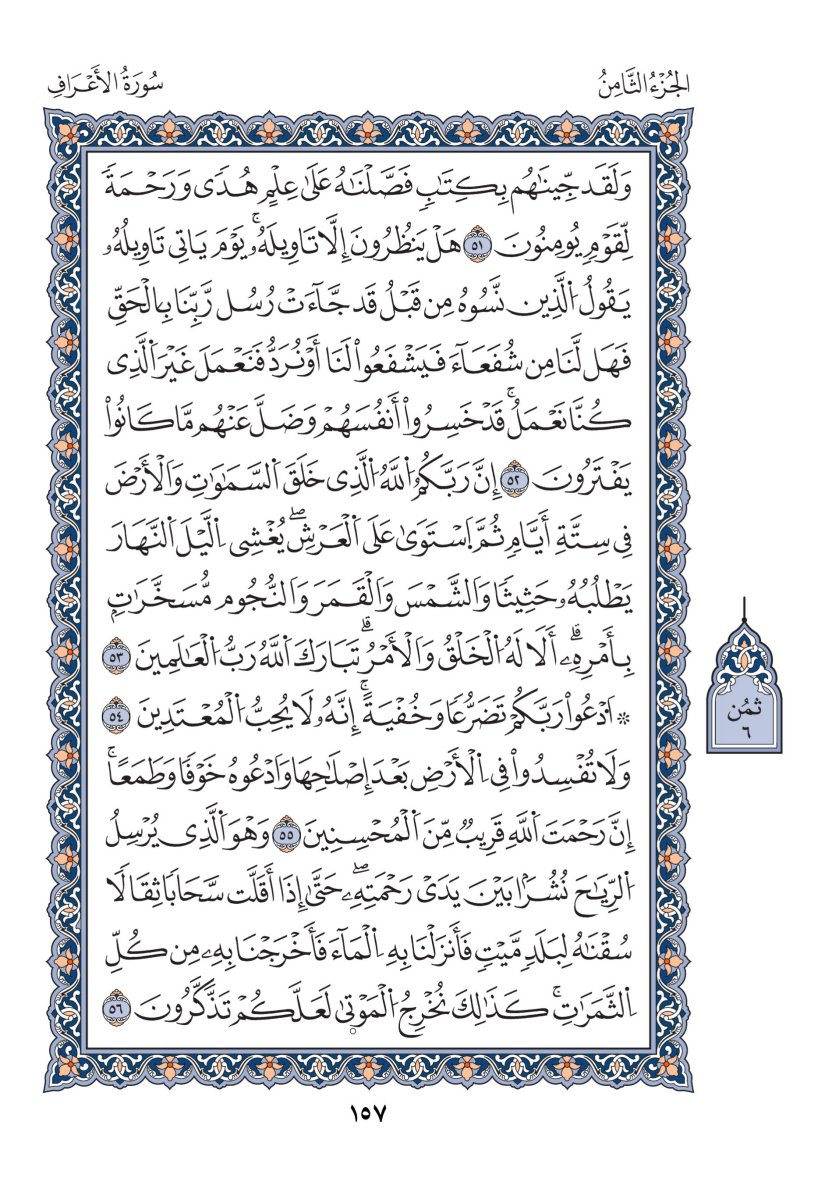 الجُزْءُ الثَّامِنُ
سُورَةُ الأَعْرَافِ
وَلَقَد جِّينَٰهُم بِكِتَٰبٖ فَصَّلْنَٰهُ عَلَىٰ عِلْمٍ هُدٗى وَرَحْمَةٗ
لِّقَوْمٖ يُومِنُونَ ٥١ هَلْ يَنظُرُونَ إِلَّا تَاوِيلَهُۥۚ يَوْمَ يَاتِي تَاوِيلُهُۥ
يَقُولُ اُلَّذِين نَّسُوهُ مِن قَبْلُ قَد جَّآءَتْ رُسُل رَّبِّنَا بِالْحَقِّ
فَهَل لَّنَا مِن شُفَعَآءَ فَيَشْفَعُواْ لَنَا أَوْ نُرَدُّ فَنَعْمَلَ غَيْرَ اَلَّذِي
كُنَّا نَعْمَلُۚ قَدْ خَسِرُواْ أَنفُسَهُمْ وَضَلَّ عَنْهُم مَّا كَانُواْ
يَفْتَرُونَ ٥٢ إِنَّ رَبَّكُمُ اُللَّهُ اُلَّذِي خَلَقَ اَلسَّمَٰوَٰتِ وَالْأَرْضَ
فِي سِتَّةِ أَيَّامٖ ثُمَّ اَسْتَوَىٰ عَلَى اَلْعَرْشِۖ يُغْشِي اِلَّيْلَ اَلنَّهَارَ
يَطْلُبُهُۥ حَثِيثٗا وَالشَّمْسَ وَالْقَمَرَ وَالنُّجُوم مُّسَخَّرَٰتِۭ
بِأَمْرِهِۦٓۗ أَلَا لَهُ اُلْخَلْقُ وَالْأَمْرُۗ تَبَارَكَ اَللَّهُ رَبُّ اُلْعَٰلَمِينَ ٥٣
۞ اَدْعُواْ رَبَّكُمْ تَضَرُّعٗا وَخُفْيَةًۚ إِنَّهُۥ لَا يُحِبُّ اُلْمُعْتَدِينَ ٥٤
وَلَا تُفْسِدُواْ فِي اِلْأَرْضِ بَعْدَ إِصْلَٰحِهَا وَادْعُوهُ خَوْفٗا وَطَمَعًاۚ
إِنَّ رَحْمَتَ اَللَّهِ قَرِيبٞ مِّنَ اَلْمُحْسِنِينَ ٥٥ وَهْوَ اَلَّذِي يُرْسِلُ
اُلرِّيَٰحَ نُشُرَۢا بَيْنَ يَدَيْ رَحْمَتِهِۦۖ حَتَّىٰ إِذَا أَقَلَّت سَّحَابٗا ثِقَالٗا
سُقْنَٰهُ لِبَلَدٖ مَّيْتٖ فَأَنزَلْنَا بِهِ اِلْمَآءَ فَأَخْرَجْنَا بِهِۦ مِن كُلِّ
اِلثَّمَرَٰتِۚ كَذَٰلِكَ نُخْرِجُ اُلْمَوْتىٰ لَعَلَّكُمْ تَذَّكَّرُونَ ٥٦
ثُمُن
٦
١٥٧